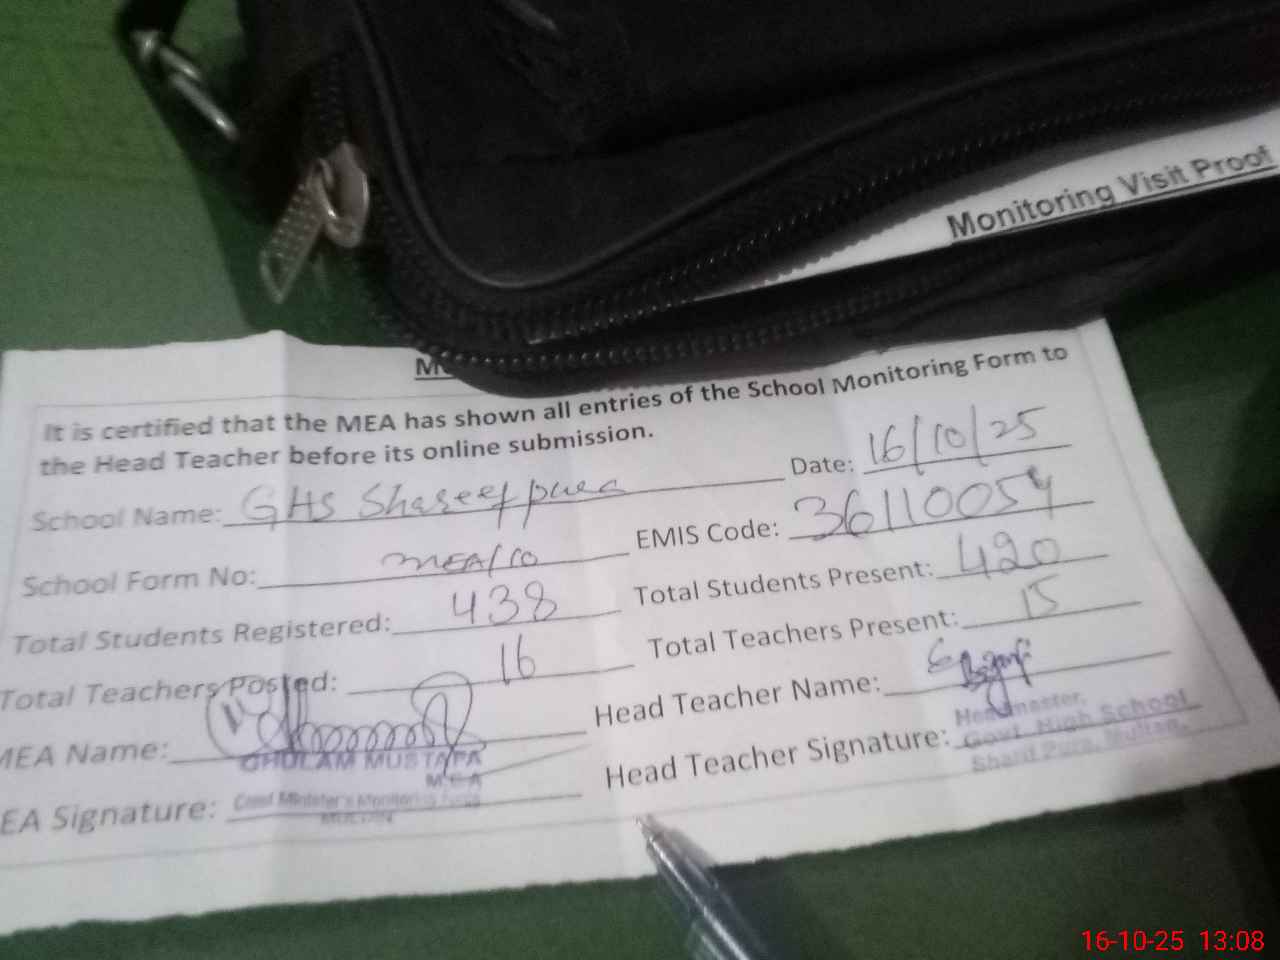 Monitoring Visit Proof
It is certified that the MEA has shown all entries of the School Monitoring Form to
the Head Teacher before its online submission.
Date: 16/10/25
School Name: GHS Shareef pura
EMIS Code: 36110054
School Form No: MEA/10
Total Students Present: 420
Total Students Registered: 438
Total Teachers Present: 15
Total Teachers Posted: 16
Head Teacher Name:
MEA Name:
GHULAM MUSTAFA
MEA
Head Teacher Signature:
Headmaster,
Govt. High School
Sharif Pura, Multan.
EA Signature: Chief Minister's Monitoring Force
MULTAN
16-10-25 13:08